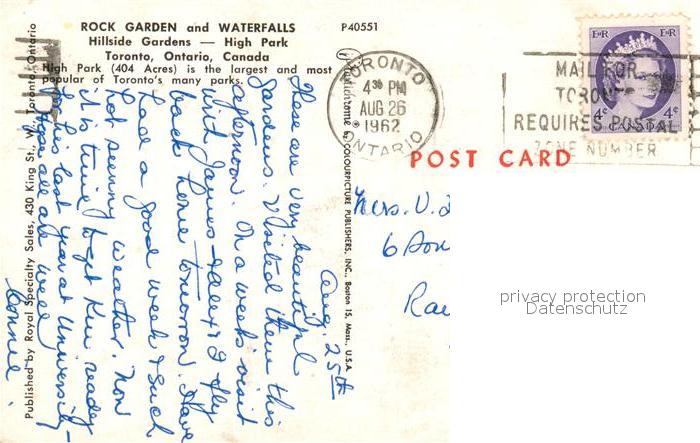 ROCK GARDEN and WATERFALLS
Hillside Gardens — High Park
Toronto, Ontario, Canada
High Park (404 Acres) is the largest and most
popular of Toronto's many parks.
P40551
TORONTO
4 30 PM
AUG 26
1962
ONTARIO
MAIL FOR
TORONTO
REQUIRES POSTAL
ZONE NUMBER
E II R E II R
4¢ 4¢
CANADA
POST CARD
Aug. 25th
These are very beautiful
gardens. Visited them this
afternoon. On a weeks visit
with James & Alex & I fly
back home tomorrow. Have
had a good week & such
hot sunny weather. Now
it is time to get Ken ready
for his last year at University
Hope all are well
Connie.
Mrs. V.
6
Published by Royal Specialty Sales, 430 King St., W., Toronto, Ontario
Plastichrome ® by COLOURPICTURE PUBLISHERS, INC., Boston 15, Mass., U.S.A.
privacy protection
Datenschutz